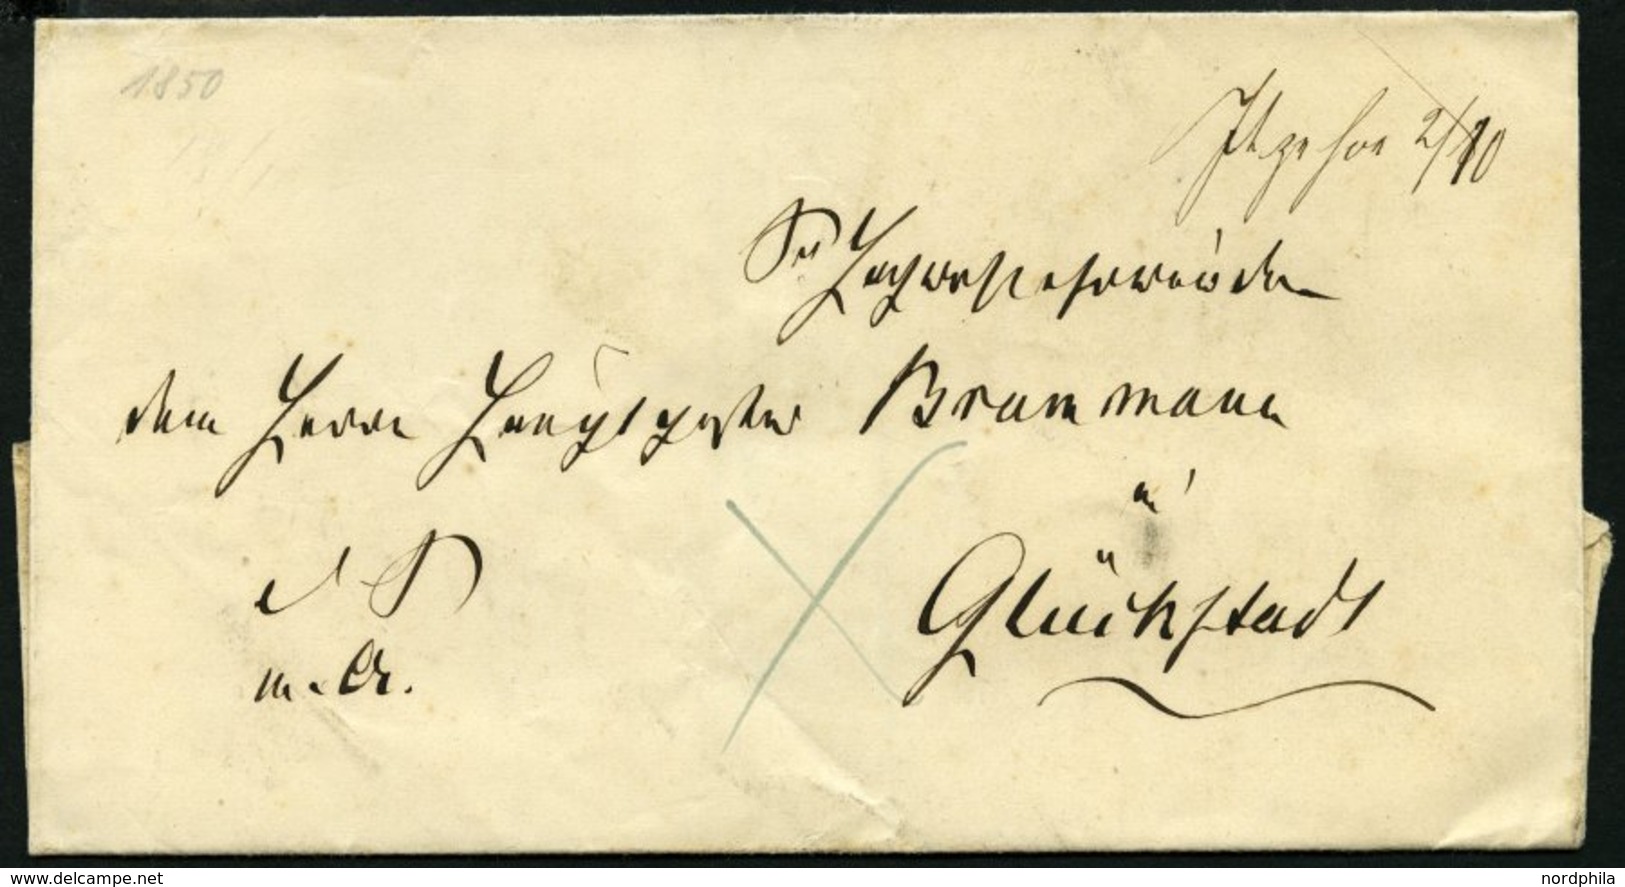 1850
Itzehoe 2/10
Sr Hochwohlehrwürden
dem Herrn Hauptpastor Brammann
in
Glückstadt
www.delcampe.net
nordphila